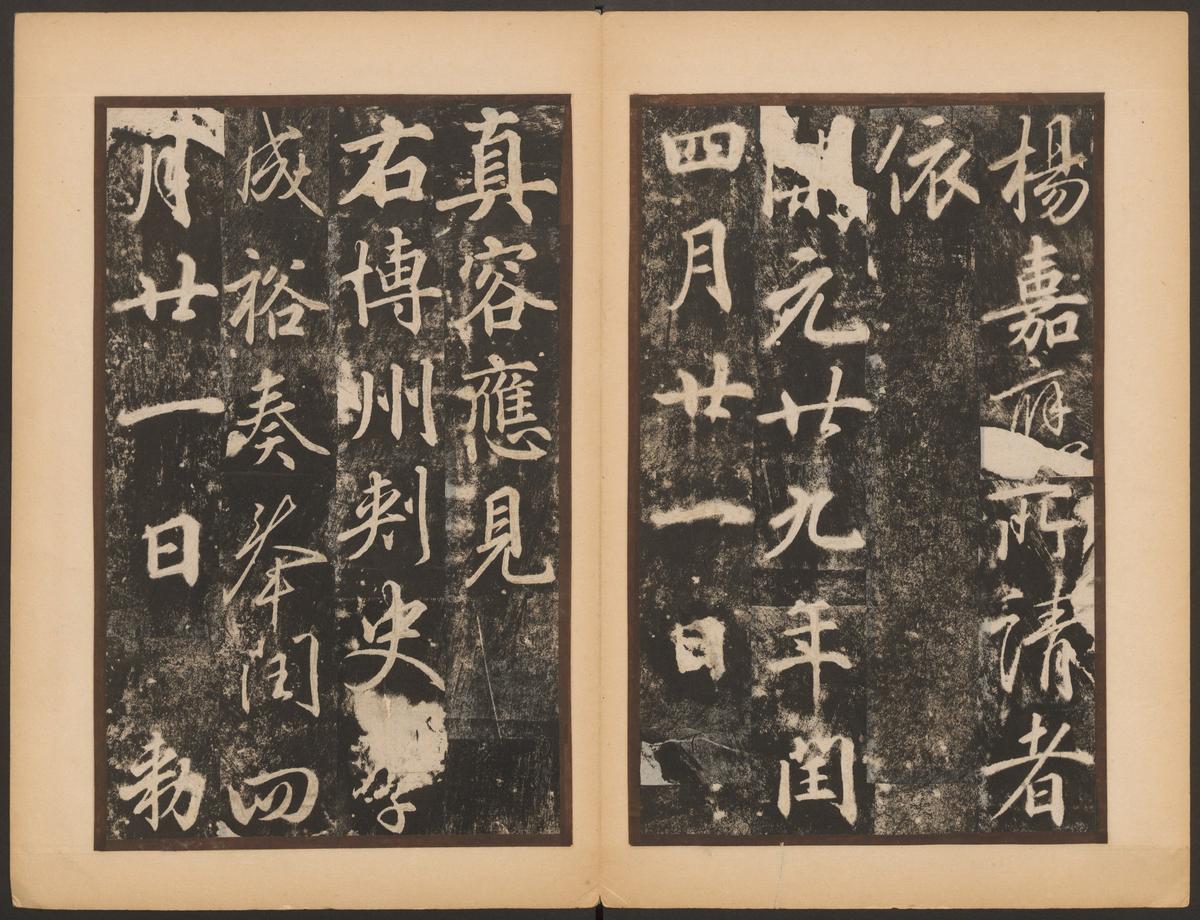 楊嘉應所請者
依
開元廿九年閏
四月廿一日
真容應見
右博州刾史李
成裕奏奉閏四
月廿一日勅